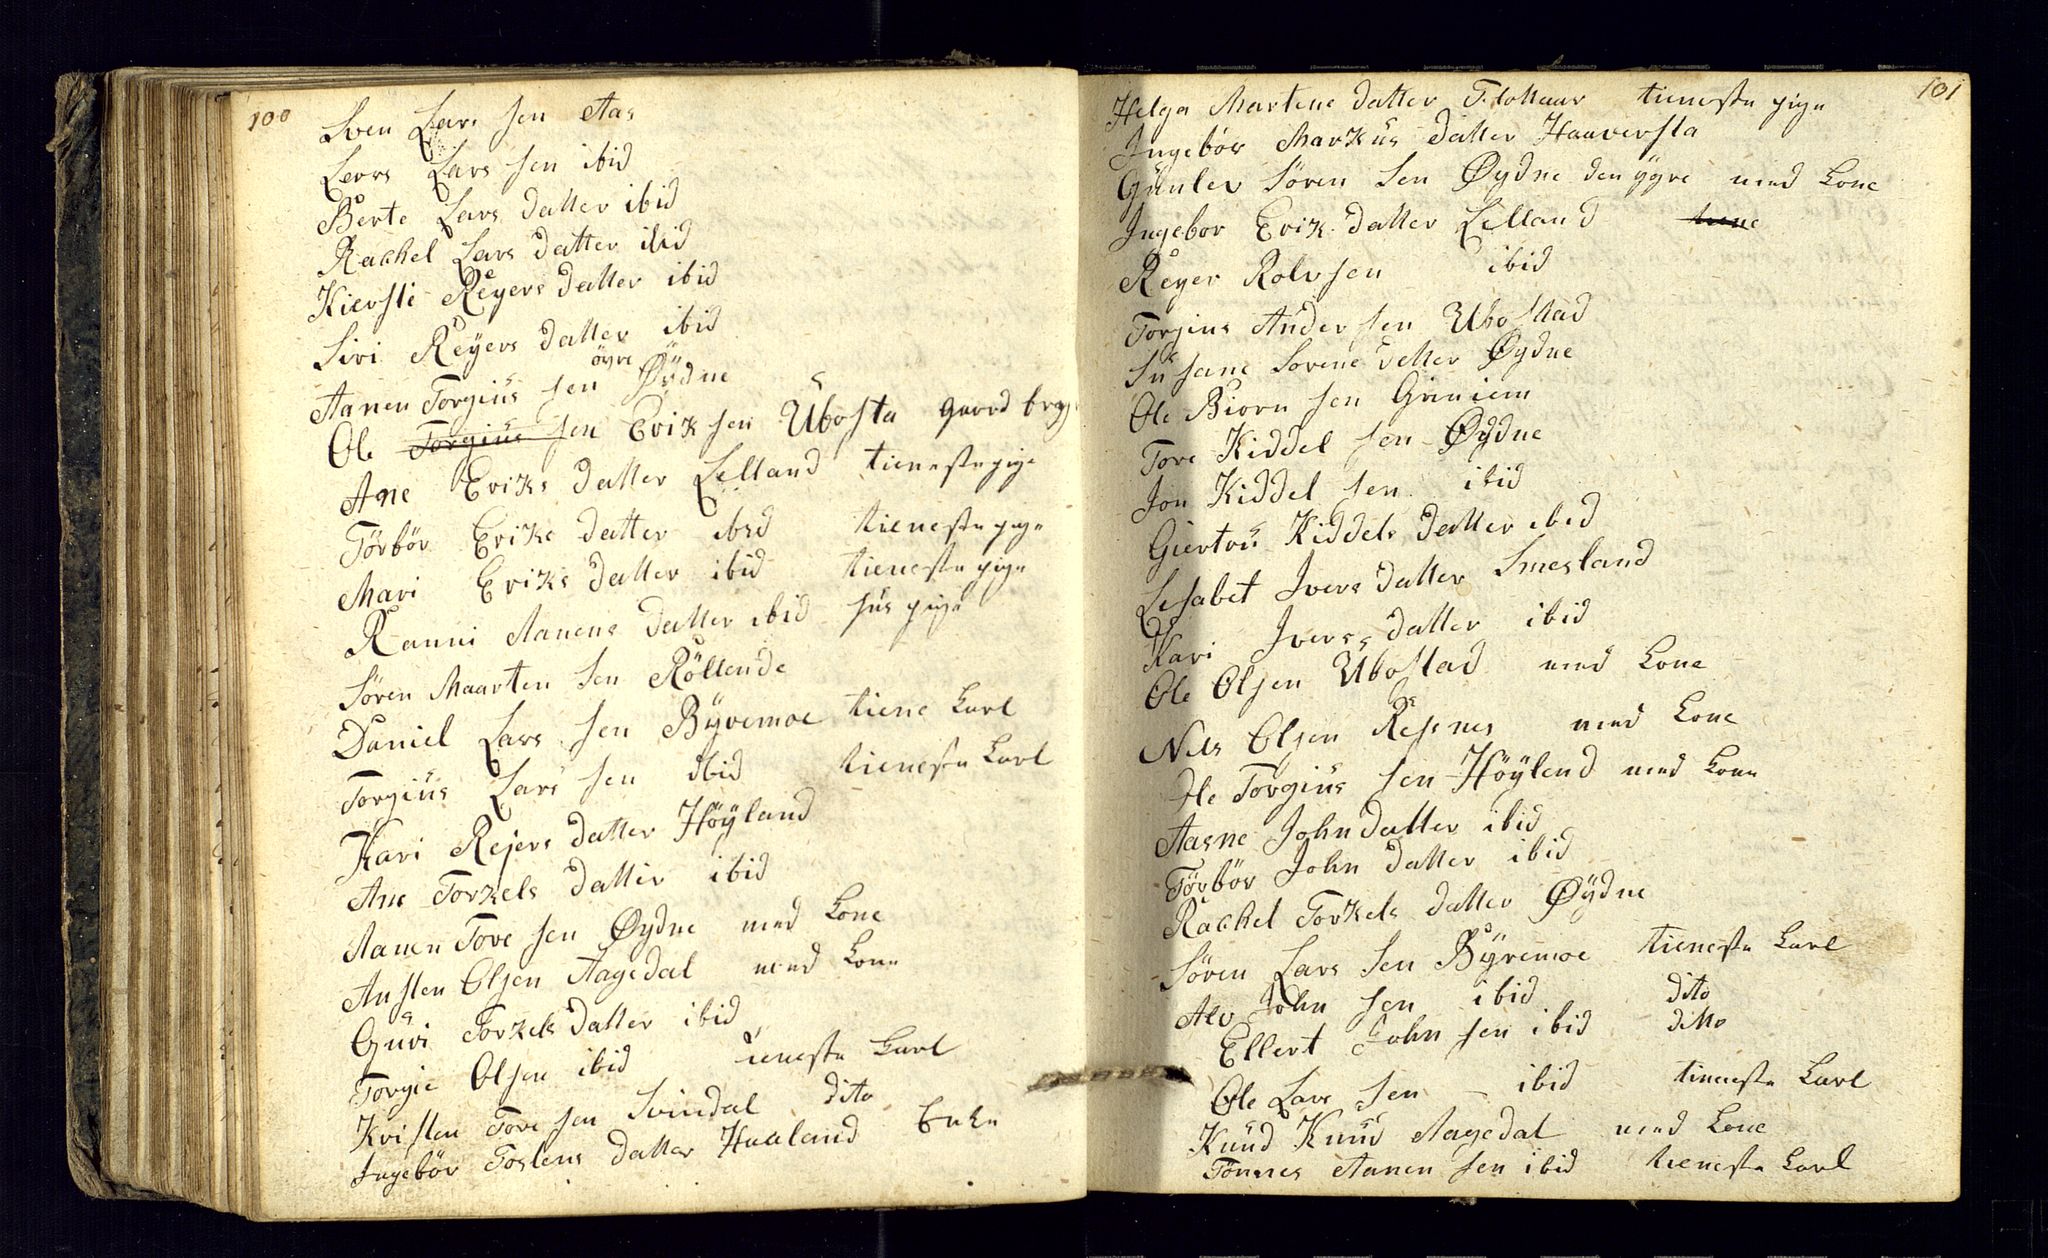 100
Sven Lars sen Aas
Leors Lars sen ibid
Berte Lars datter ibid
Rachel Lars datter ibid
Kiersti Reyers datter ibid
Siri Reÿers datter ibid
Aanen Torgius sen öÿre Øÿdne
Ole Torgius sen Erik sen Ubosta gaard brÿ
Ane Eriks datter Lelland tienestepige
Törbör Eriks datter ibid tienestepige
Mari Eriks datter ibid tieneste pige
Ranni Aanens datter ibid hus pige
Sören Maarten sen Röllende
Daniel Lars sen Bÿremoe tiene Karl
Torgius Lars sen ibid tieneste Karl
Kari Rejers datter Höÿland
Ane Torkels datter ibid
Aanen Tove sen Øydne med Kone
Austen Olsen Aagedal med Kone
Guri Torkels datter ibid
Torgie Olsen ibid tieneste Karl
Kristen Tore sen Svindal dito
Ingebör Toslens datter Haaland Enke
101
Helga Martene datter tieneste pige
Ingebör Markus datter Haaversta
Gunlev Sören Sen Øydne den ÿgre med Kone
Ingebor Erik datter Lelland tiene
Reyer Rolvsen ibid
Torgius Andersen Ubostad
Susane Sorene detter Øydne
Ole Biorn sen Griniem
Tore Kiddel sen Øydne
Jon Kiddel sen ibid
Giertru Kiddels datter ibid
Lisabet Ivers datter Smesland
Kari Iverss datter ibid
Ole Olsen Ubostad med Kone
Nils Olsen Resnes med Kone
Ole Torgius sen Höÿlend med Kone
Aasne John datter ibid
Törbör John datter ibid
Rachel Torkels datter Øÿdne
Sören Lars Sen Bÿremoe tieneste Karl
Alv John sen ibid dito
Ellert John sen ibid ditto
Ole Lars sen - ibid tieneste Karl
Knud Knud Aagedal med Kone
Tönnes Aanen sen ibid tieneste Karl